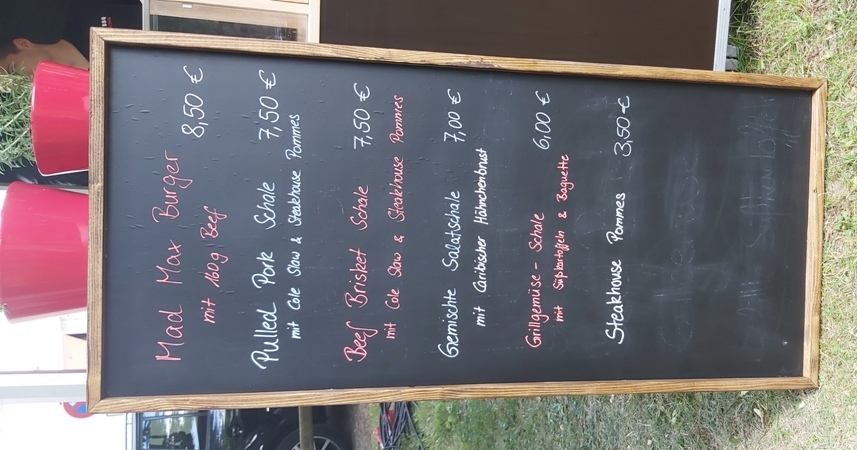 Mad Max Burger
mit 160g Beef 8,50 €
Pulled Pork Schale 7,50 €
mit Cole Slaw & Steakhouse Pommes
Beef Brisket Schale 7,50 €
mit Cole Slaw & Steakhouse Pommes
Gemischte Salatschale 7,00 €
mit Caribischer Hähnchenbrust
Grillgemüse-Schale 6,00 €
mit Süßkartoffeln & Baguette
Steakhouse Pommes 3,50 €